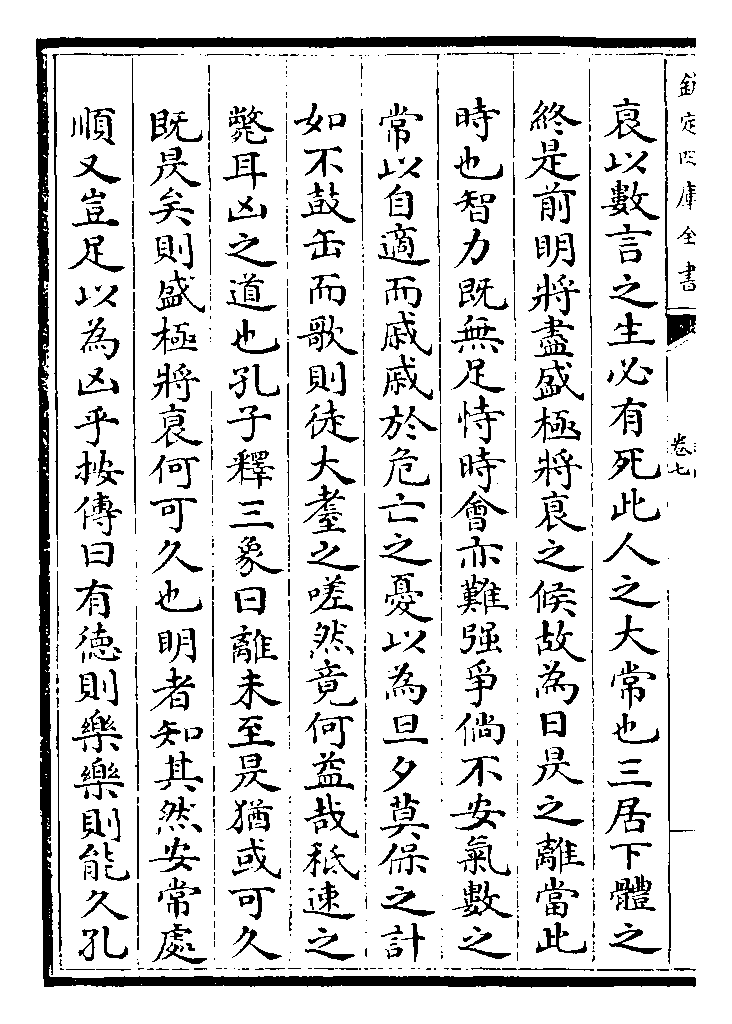 欽定四庫全書
卷七
哀以數言之生必有死此人之大常也三居下體之
終是前明將盡盛極將衰之候故為日昃之離當此
時也智力既無足恃時會亦難强爭倘不安氣數之
常以自適而戚戚於危亡之憂以為旦夕莫保之計
如不鼓缶而歌則徒大耋之嗟然竟何益哉秪速之
斃耳凶之道也孔子釋三象曰離未至昃猶或可久
既昃矣則盛極將衰何可久也明者知其然安常處
順又豈足以為凶乎按傳曰有德則樂樂則能久孔